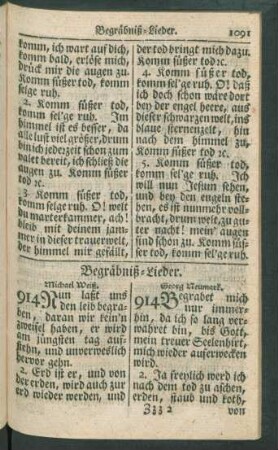 Begräbniß-Lieder. 1091
komm, ich wart auf dich,
komm bald, erlöse mich,
drück mir die augen zu.
Komm süßer tod, komm
selge ruh.
2. Komm süßer tod,
komm sel'ge ruh. Im
himmel ist es besser, da
alle lust viel größer, drum
bin ich jederzeit schon zum
valet bereit, ich schließ die
augen zu. Komm süßer
tod ꝛc.
3. Komm süßer tod,
komm selge ruh. O! welt
du marterkammer, ach!
bleib mit deinem jam-
mer in dieser trauerwelt,
der himmel mir gefällt,
der tod bringt mich dazu.
Komm süßer tod ꝛc.
4. Komm süßer tod,
komm sel'ge ruh. O! daß
ich doch schon wäre dort
bey der engel heere, aus
dieser schwarzen welt, ins
blaue sternenzelt, hin
nach dem himmel zu,
Komm süßer tod ꝛc.
5. Komm süßer tod,
komm sel'ge ruh. Ich
will nun Jesum sehen,
und bey den engeln ste-
hen, es ist nunmehr voll-
bracht, drum welt, zu gu-
ter nacht! mein' augen
sind schon zu. Komm süs-
ser tod, komm sel'ge ruh.
Begräbniß-Lieder.
Michael Weiß.
914. Nun laßt uns
den leib begra-
ben, daran wir kein'n
zweifel haben, er wird
am jüngsten tag auf-
stehn, und unverweslich
hervor gehn.
2. Erd ist er, und von
der erden, wird auch zur
erd wieder werden, und
Georg Neumark.
914. Begrabet mich
nur immer-
hin, da ich so lang ver-
wahret bin, bis Gott,
mein treuer Seelenhirt,
mich wieder auferwecken
wird.
2. Ja freylich werd ich
nach dem tod zu aschen,
erden, staub und koth,
Zzz 2 von